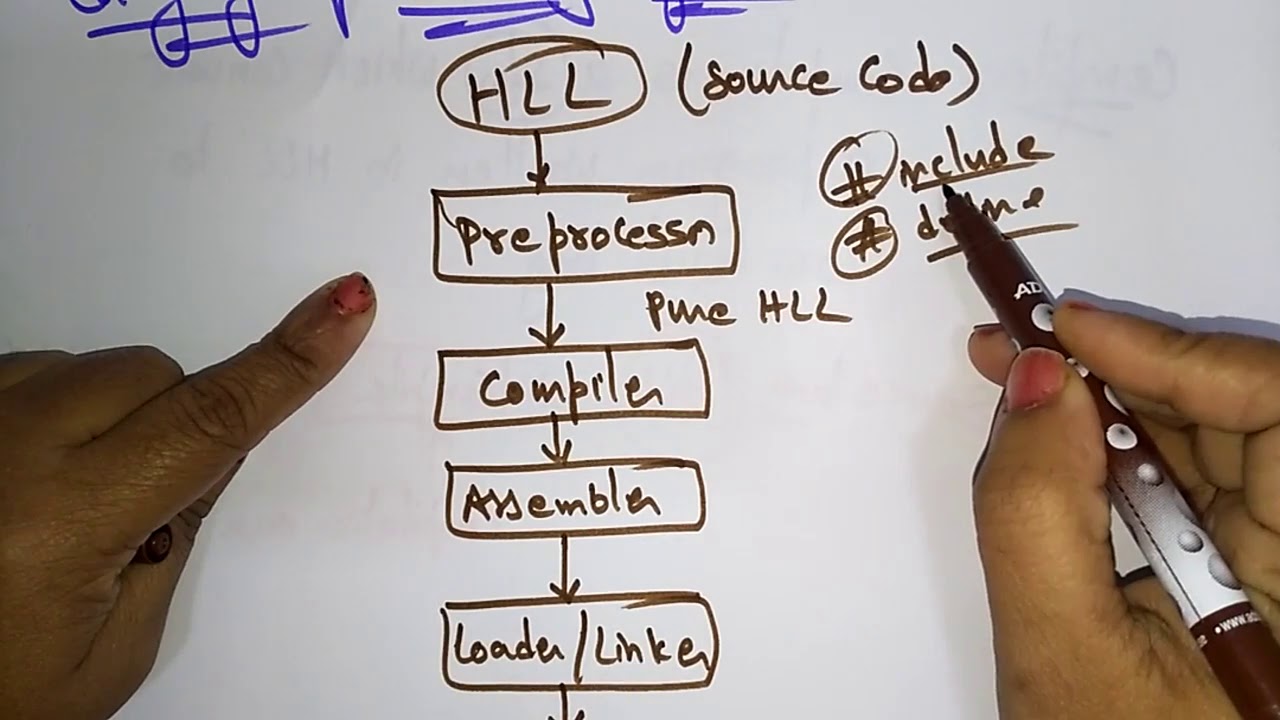 HLL (Source Code)
# include
# define
Preprocessor
Pure HLL
Compiler
Assembler
Loader/Linker
AD